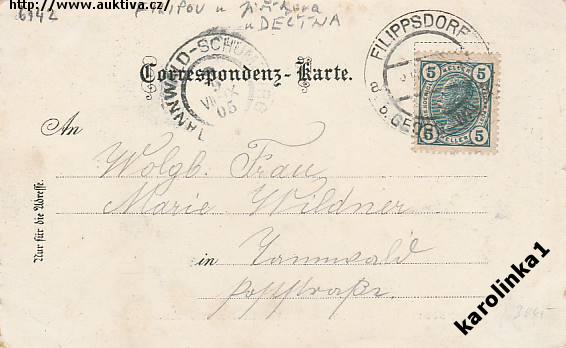 http://www.auktiva.cz/
6942
FILIPOV u Jiříkova
u DĚČÍNA
Correspondenz-Karte.
TANNWALD-SCHUM
VIII IX
05
FILIPPSDORF
b. GEO
5 5
HELLER
5 5
HELLER
An
Wolgb. Frau
Marie Wildner
in Tannwald
Poststraße
Nur für die Adresse.
karolinka1